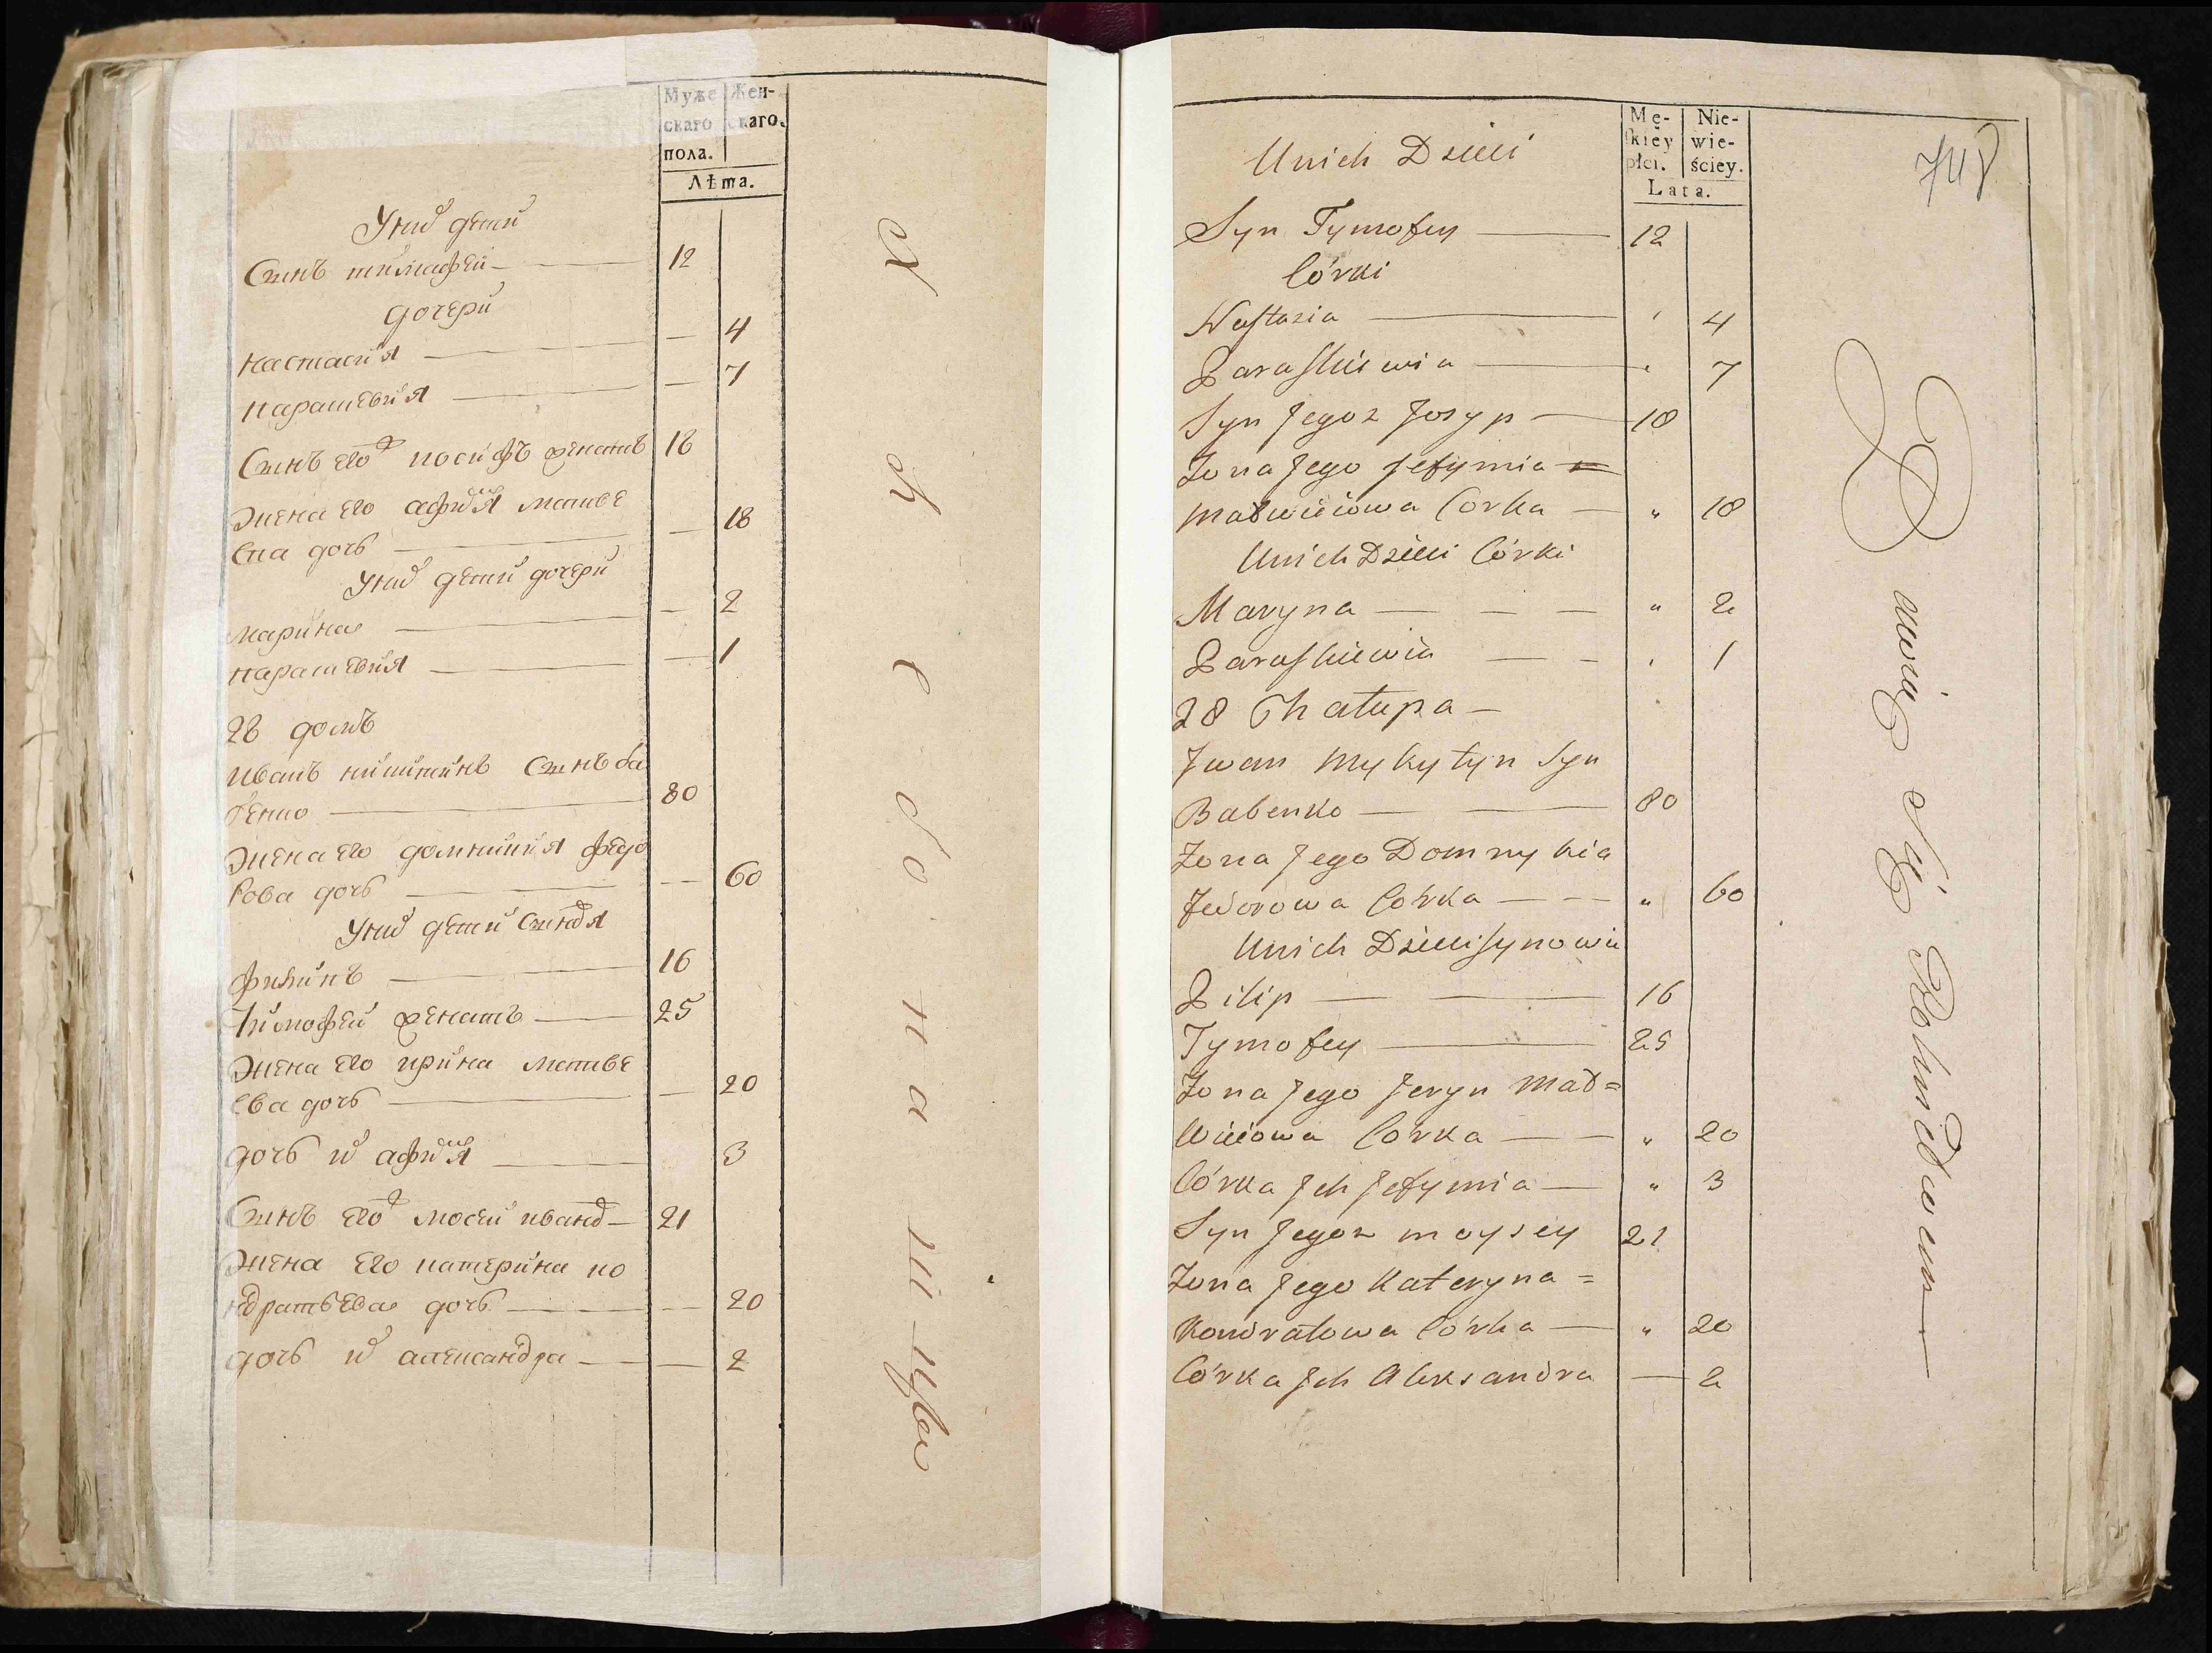 Муже
скаго
пола.
Жен-
скаго.
Лѣта.
Уних дети
Синъ тимофей — 12
дочери
настасия — — 4
парашевия — — 7
Синъ его ж иосифъ женатъ 18
жена его афимия матве
ева дочь — — 18
Уних дети дочери
марина — — 2
парашевия — — 1
28 домъ
иванъ никитинъ Синъ ба
бенко — 80
жена его домникия федо
рова дочь — — 60
Уних дети Синовя
филипъ — 16
тимофей женатъ — 25
жена его ирина матве
ева дочь — — 20
дочь их афимия — 3
Синъ его ж мосей иванов — 21
жена его катерина ко
ндратьева дочь — — 20
дочь их александра — — 2
Mę-
skiéy
płci.
Nie-
wie-
ściey.
Lata.
748
Unich Dzieci
Syn Tymofey — 12
Córki
Nastazia — " 4
Paraskiewia — " 7
Syn Jegoz Josyp — 18
Zona Jego Jefymia
Matwiiowa Corka — " 18
Unich Dzieci Córki
Maryna — — — " 2
Paraskiewia — — " 1
28 Chatupa —
Jwan Mykytyn Syn
Babenko — — 80
Zona Jego Domnykia
Fedorowa Córka — — — " 60
Unich Dzieci Synowie
Pilip — — 16
Tymofey — 25
Zona Jego Jeryn Mat=
wiiowa Córka — — " 20
Córka Jch Jefymia — " 3
Syn Jegoz Moysey 21
Zona Jego Kateryna =
Kondratowa Córka — " 20
Córka Jch Aleksandra — 2